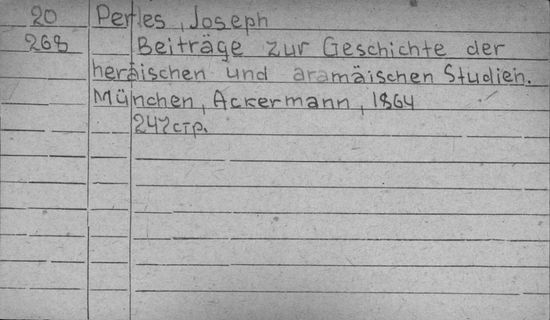 20 Perles, Joseph
268 Beiträge zur Geschichte der
heräischen und aramäischen Studien.
München, Ackermann, 1864
247 стр.